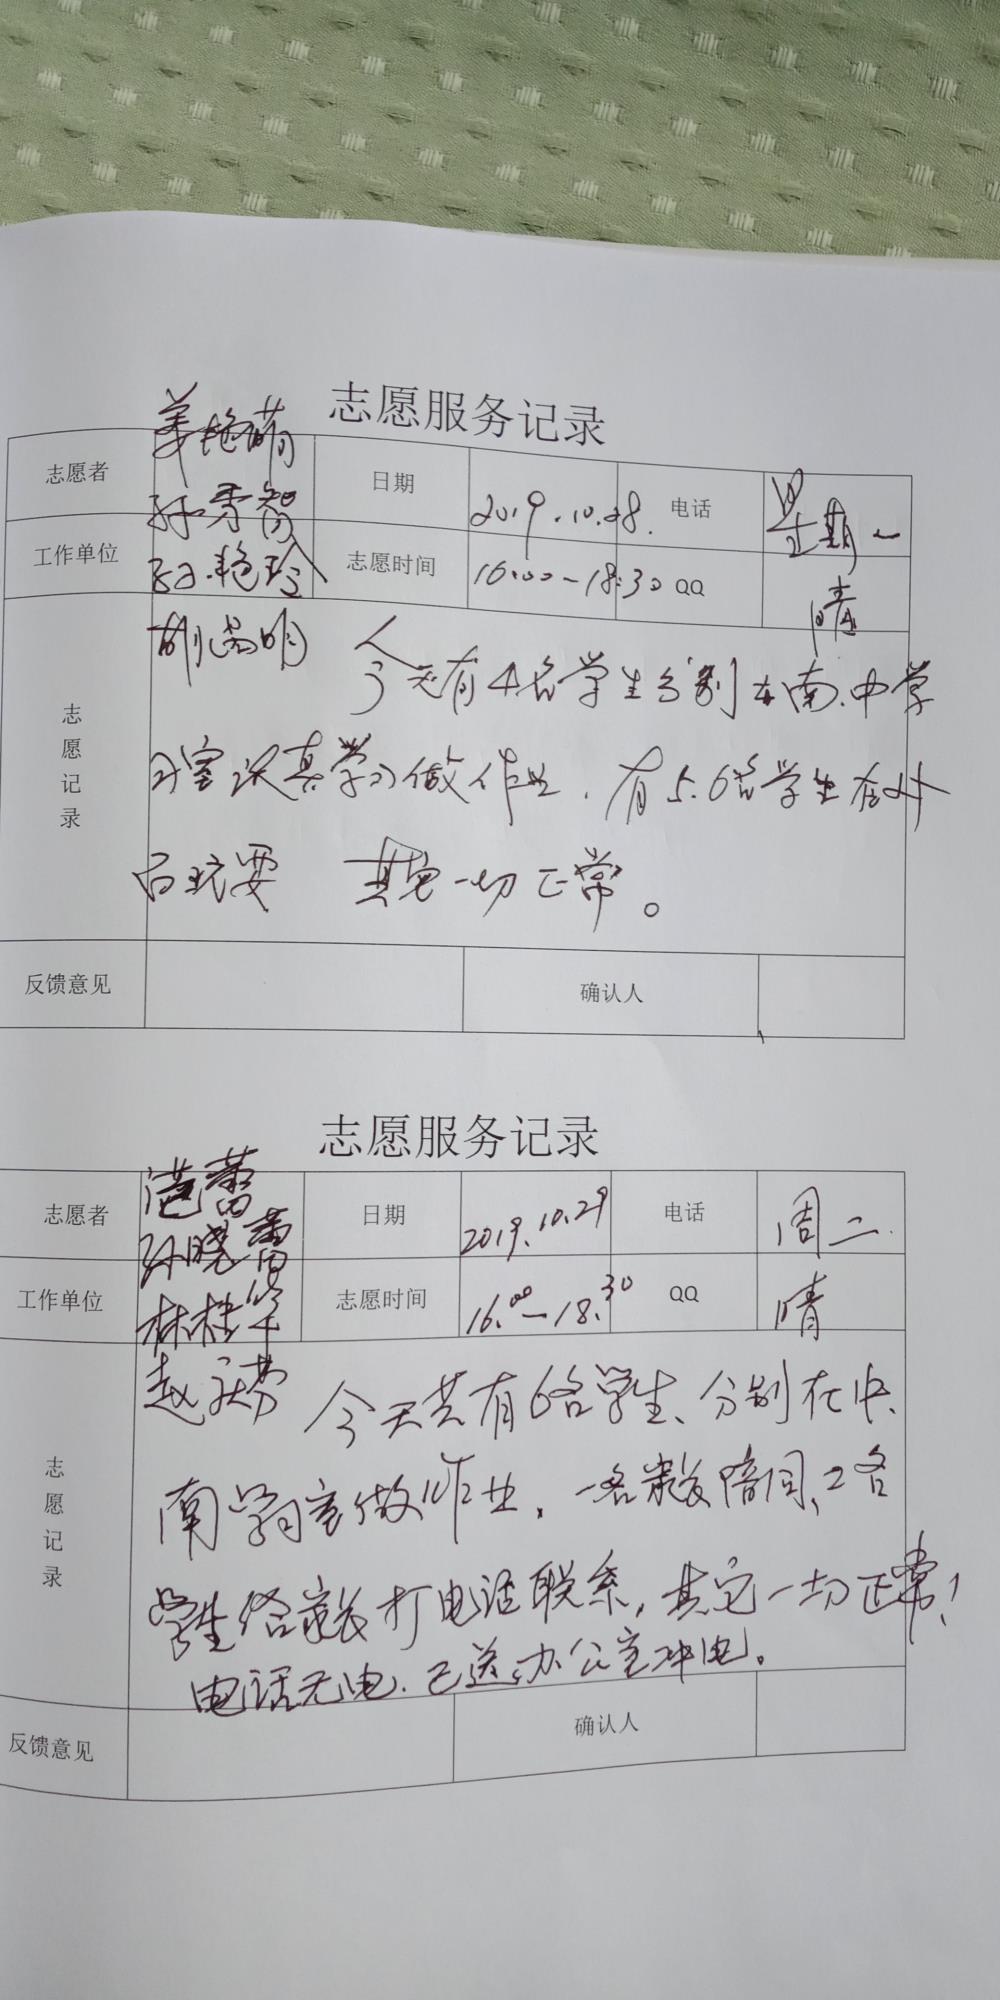 志愿服务记录
志愿者 姜艳萌 日期 2019.10.28. 电话 星期一
孙秀智
工作单位 孙艳玲 志愿时间 16:00-18:30 QQ 晴
胡 明 今天有4名学生分别在南.中学
志愿记录
习室认真学习做作业.有5.6名学生在外
面玩耍 其它一切正常。
反馈意见 确认人
志愿服务记录
志愿者 范蕾 日期 2019.10.29 电话 周二.
孙晓蕾
工作单位 林桂华 志愿时间 16.00-18.30 QQ 晴
赵 今天共有6名学生、分别在中.
志愿记录
南学习室做作业.一名家长陪同、2名
学生给家长打电话联系,其它一切正常!
电话无电.已送办公室冲电。
反馈意见 确认人